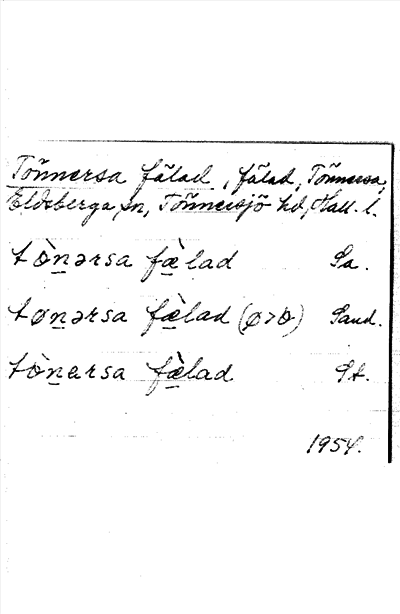 Tönnersa fälad, fälad, Tönnersa,
Eldsberga sn, Tönnersjö hd, Hall. l.
tò̤nərsa fæ̀lad Sa.
tønərsa fæ̀lad (ø>ö) Sand.
tònarsa fæ̀lad St.
1954.